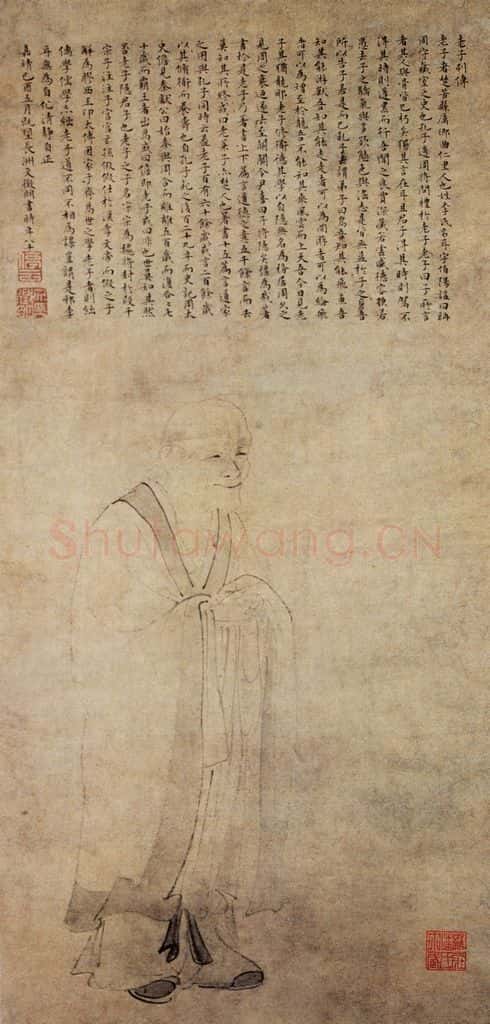 老子列傳
老子者楚苦縣厲鄉曲仁里人也姓李氏名耳字伯陽諡曰聃
周守藏室之史也孔子適周將問禮於老子老子曰子所言
者其人與骨皆已朽矣獨其言在耳且君子得其時則駕不
得其時則蓬累而行吾聞之良賈深藏若虛盛德容貌若
愚去子之驕氣與多欲態色與淫志是皆無益於子之身吾
所以告子若是而已孔子去謂弟子曰鳥吾知其能飛魚吾
知其能游獸吾知其能走走者可以為罔游者可以為綸飛
者可以為矰至於龍吾不能知其乘風雲而上天吾今日見老
子其猶龍邪老子修道德其學以自隱無名為務居周久之
見周之衰迺遂去至關關令尹喜曰子將隱矣彊為我著
書於是老子乃著書上下篇言道德之意五千餘言而去
莫知其所終或曰老萊子亦楚人也著書十五篇言道家
之用與孔子同時云蓋老子百有六十餘歲或言二百餘歲
以其脩道而養壽也自孔子死之後百二十九年而史記周太
史儋見秦獻公曰始秦與周合而離離五百歲而復合合七
十歲而霸王者出焉或曰儋即老子或曰非也世莫知其然
否老子隱君子也老子之子名宗宗為魏將封於段干
宗子注注子宮宮玄孫假假仕於漢孝文帝而假之子
解為膠西王卬太傅因家于齊焉世之學老子者則絀
儒學儒學亦絀老子道不同不相為謀豈謂是邪李
耳無為自化清靜自正
嘉靖己酉五月既望長洲文徵明書時年八十
Shufawang.CN